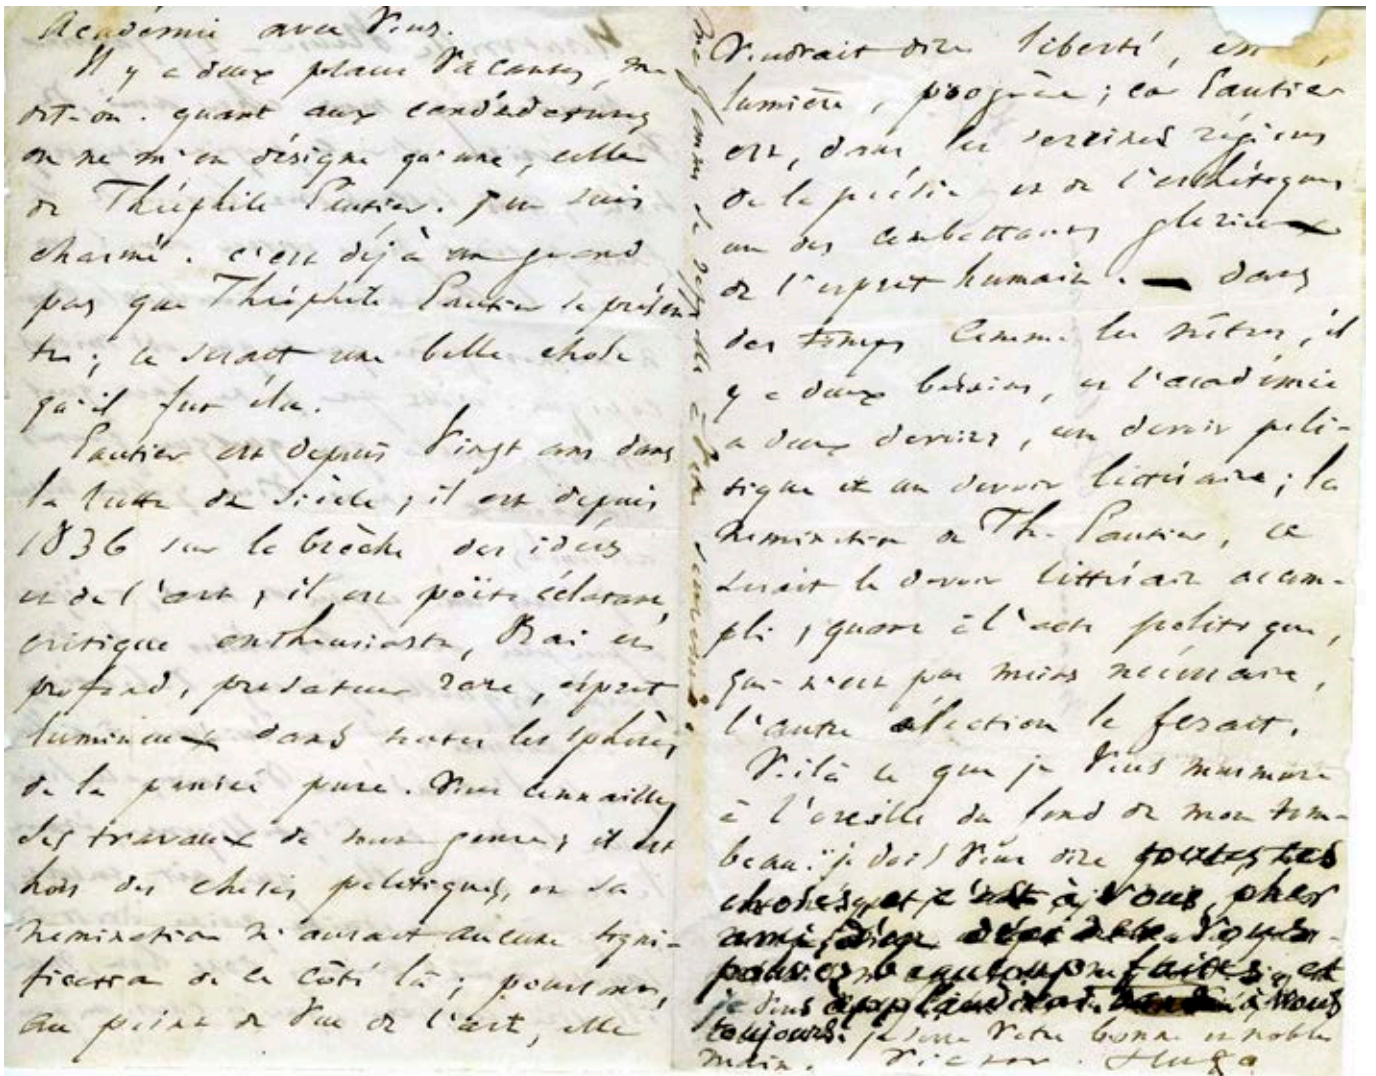 Académie avec vous.
Il y a deux places vacantes, me
dit-on. quant aux candidatures
on ne m'en désigne qu'une, celle
de Théophile Gautier. j'en suis
charmé. c'est déjà un grand
pas que Théophile Gautier se présen-
te ; ce serait une belle chose
qu'il fut élu.
Gautier est depuis vingt ans dans
la lutte du siècle ; il est depuis
1836 sur la brèche des idées
et de l'art ; il est poëte éclatant,
critique enthousiaste, vrai et
profond, prosateur rare, esprit
lumineux dans toutes les sphères
de la pensée pure. Vous connaissez
ses travaux de tout genre ; il est
hors des choses politiques, et sa
nomination n'aurait aucune signi-
fication de ce côté là ; pourtant,
au point de vue de l'art, elle
voudrait dire liberté,
lumière, progrès ; car Gautier
est, dans les sereines régions
de la poésie et de l'esthétique,
un des combattants glorieux
de l'esprit humain. — dans
des temps comme les nôtres, il
y a deux besoins, et l'académie
a deux devoirs, un devoir poli-
tique et un devoir littéraire ; la
nomination de Th. Gautier, ce
serait le devoir littéraire accom-
pli ; quant à l'acte politique,
qui n'est pas moins nécessaire,
l'autre élection le ferait.
Voilà ce que je vous murmure
à l'oreille du fond de mon tom-
beau. je dois vous dire toutes ces
choses, et c'est à vous, cher
ami,
pouvez beaucoup faire, et
je vous applaudirai à vous
toujours. je serre votre bonne et noble
main. Victor Hugo